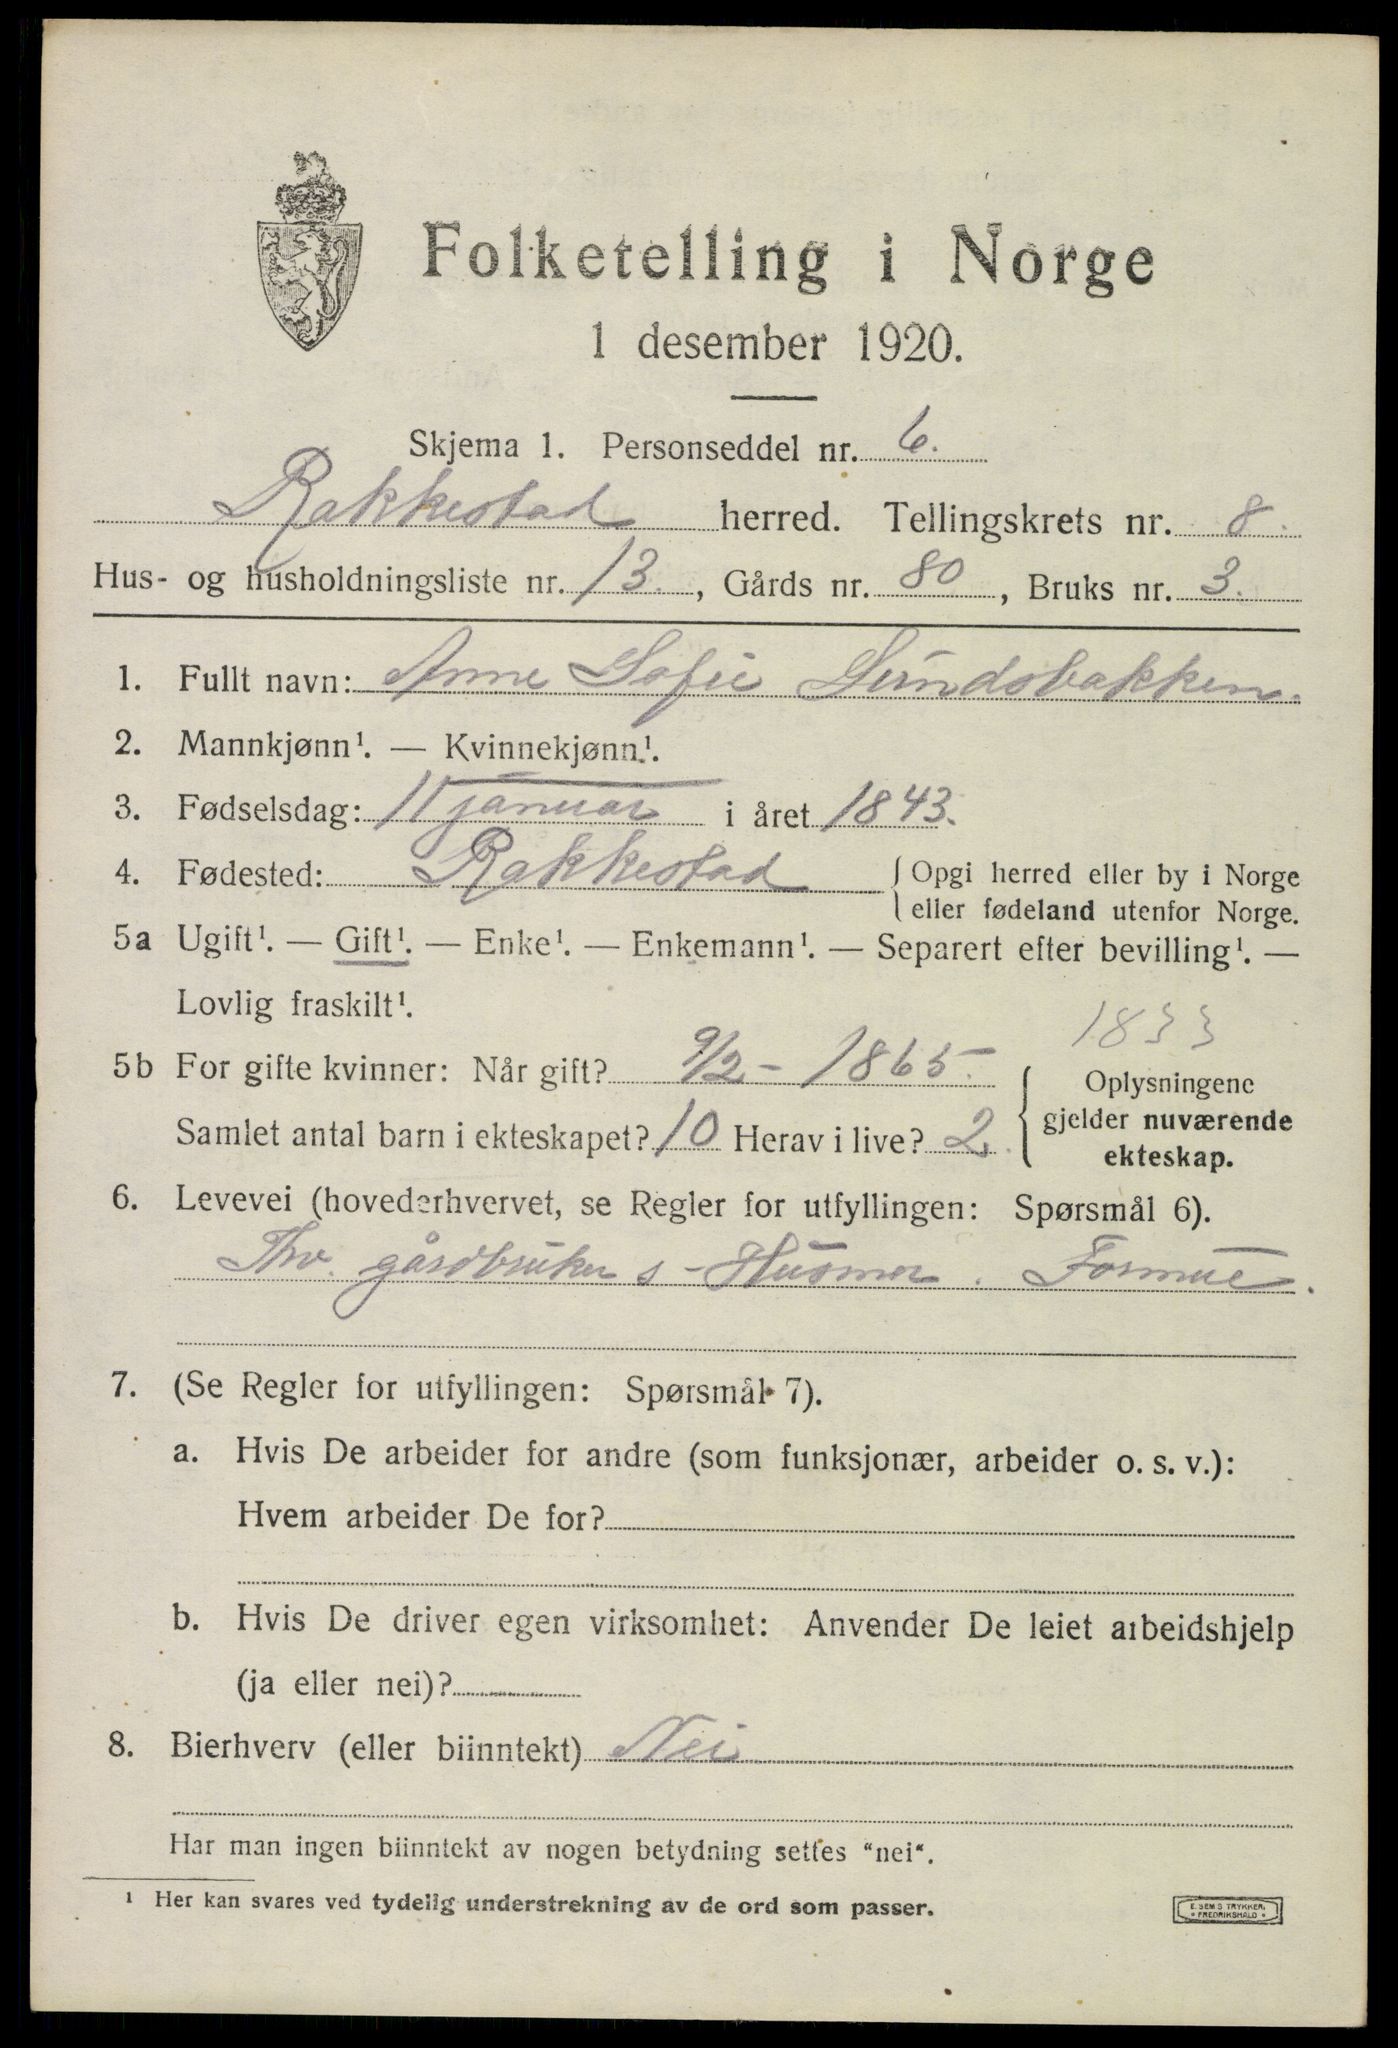 Folketelling i Norge
1 desember 1920.
Skjema 1. Personseddel nr. 6.
Rakkestad herred. Tellingskrets nr. 8.
Hus- og husholdningsliste nr. 13., Gårds nr. 80, Bruks nr. 3.
1. Fullt navn: Anne Sofie Sundsbakken.
2. Mannkjønn¹. — Kvinnekjønn.¹.
3. Fødselsdag: 11 januar i året 1843.
4. Fødested: Rakkestad { Opgi herred eller by i Norge
eller fødeland utenfor Norge.
5a Ugift¹. — Gift¹. — Enke¹. — Enkemann¹. — Separert efter bevilling¹. —
Lovlig fraskilt¹.
5b For gifte kvinner: Når gift? 9/2 - 1865. { Oplysningene
Samlet antal barn i ekteskapet? 10 Herav i live? 2. gjelder nuværende
ekteskap.
6. Levevei (hovederhvervet, se Regler for utfyllingen: Spørsmål 6).
Fhv. gårdbruker s - Husmor. Formue.
7. (Se Regler for utfyllingen: Spørsmål 7).
a. Hvis De arbeider for andre (som funksjonær, arbeider o. s. v.):
Hvem arbeider De for?
b. Hvis De driver egen virksomhet: Anvender De leiet arbeidshjelp
(ja eller nei)?
8. Bierhverv (eller biinntekt) Nei
Har man ingen biinntekt av nogen betydning settes "nei".
¹ Her kan svares ved tydelig understrekning av de ord som passer.
E. SEMS TRYKKERI,
FREDRIKSHALD